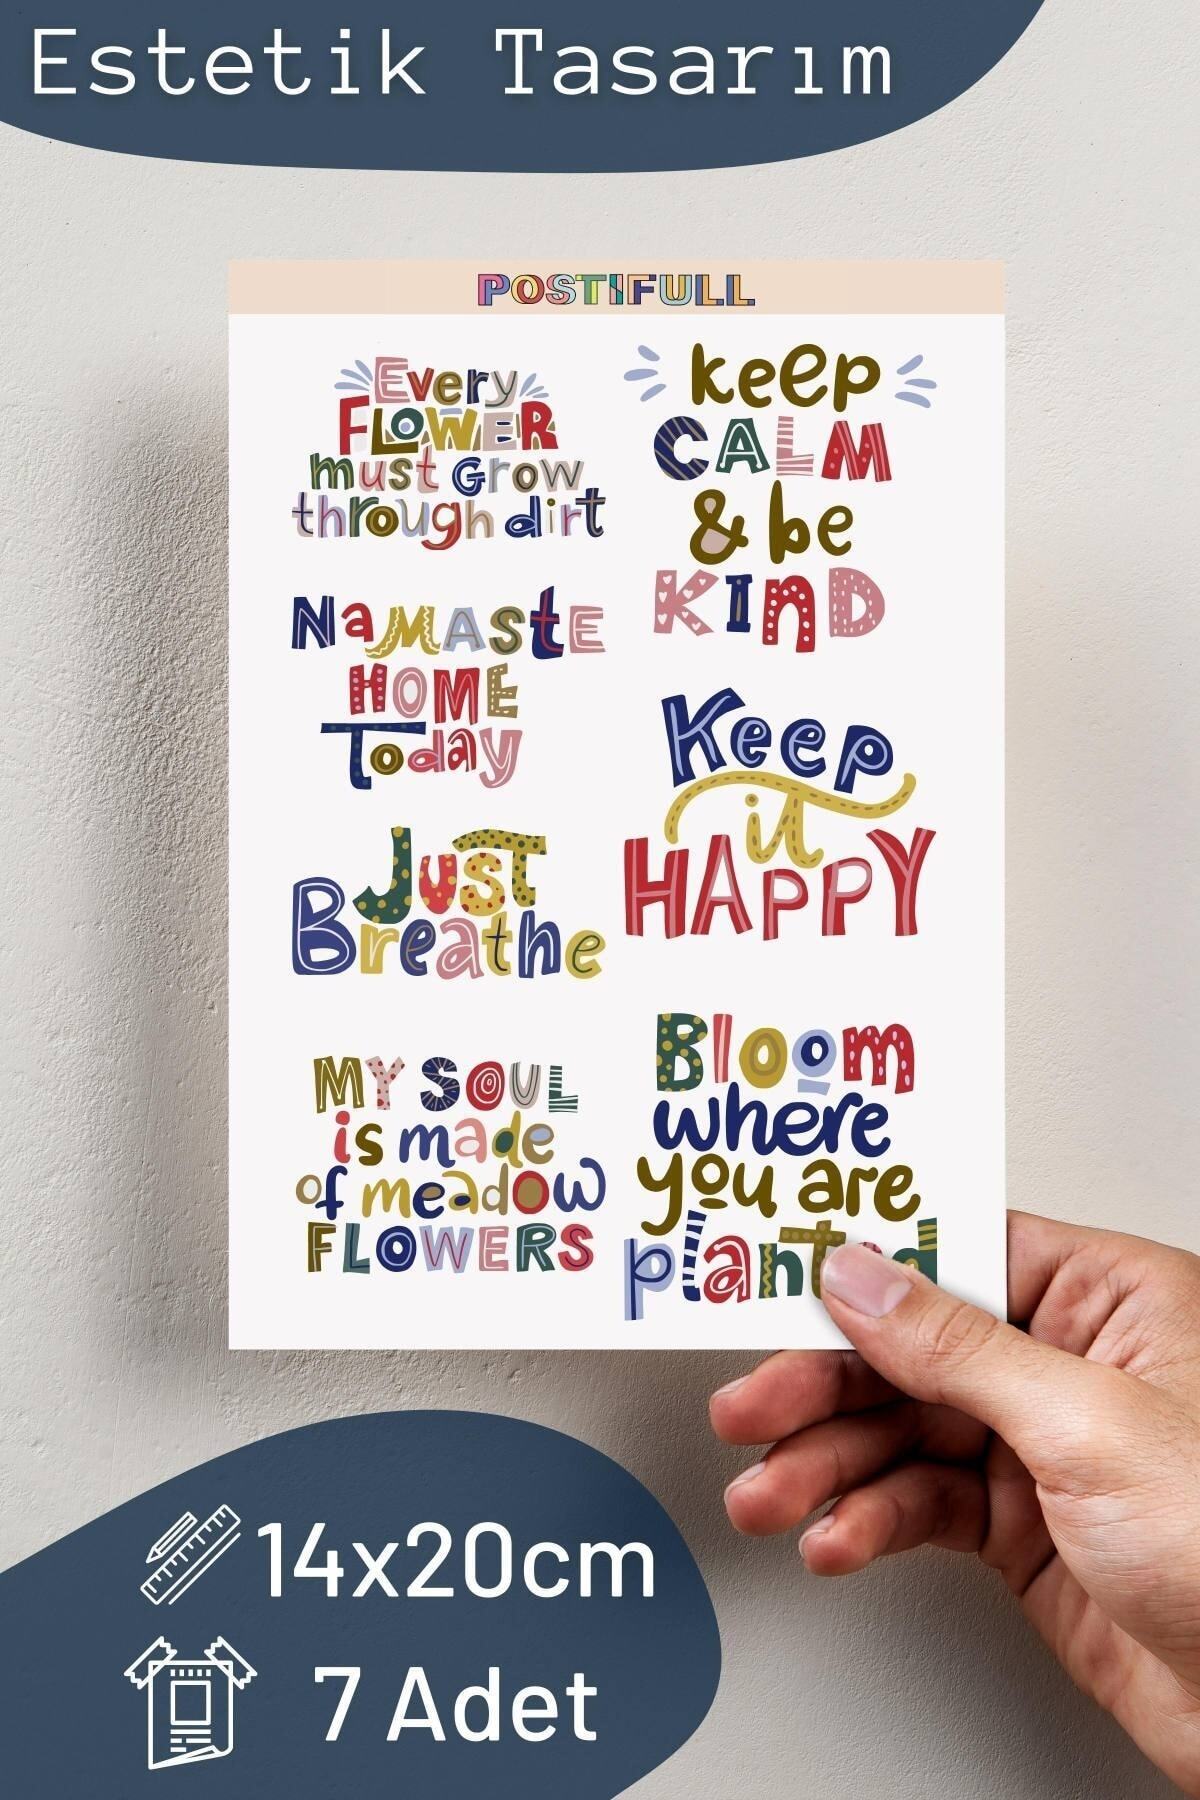 Estetik Tasarım
POSTIFULL
Every
FLOWER
must Grow
through dirt
NaMASTE
HOME
Today
JUST
Breathe
MY SOUL
is made
of meadow
FLOWERS
keep
CALM
& be
KInD
Keep
it
HAPPY
Bloom
where
you are
planted
14x20cm
7 Adet